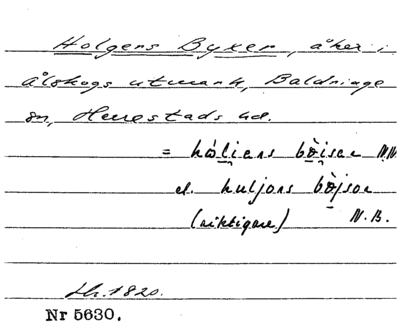 Holgens Byxer, åker i
Ålskogs utmark, Baldringe
sn, Herrestads hd.
= hὼliens bòiser N.N.
el. huljons bòjsor
(riktigare) N.B.
Lh. 1820.
Nr 5630.